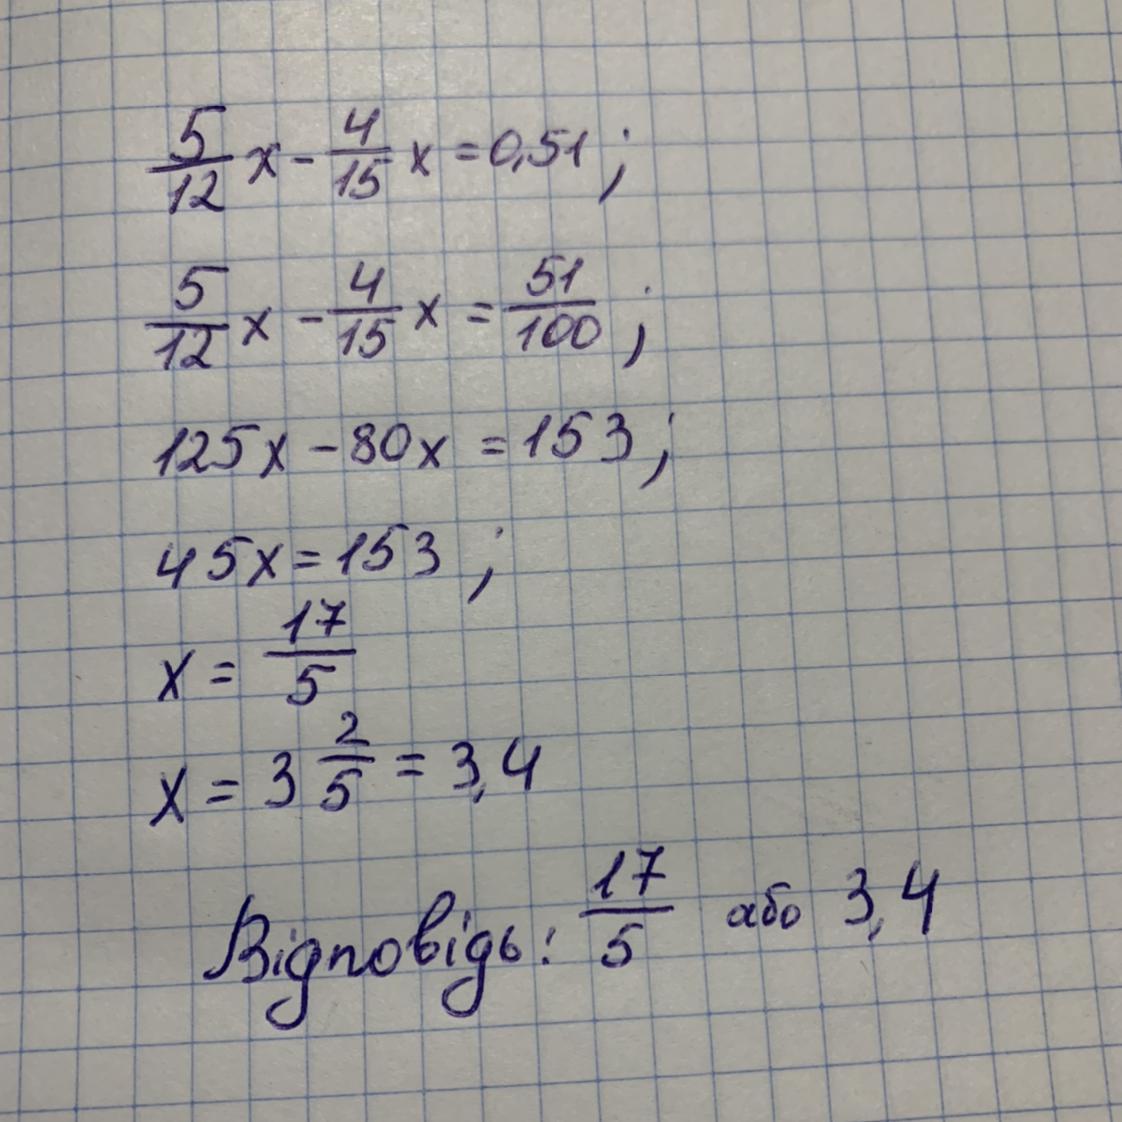 5/12 x - 4/15 x = 0,51 ;
5/12 x - 4/15 x = 51/100 ;
125x - 80x = 153 ;
45x = 153 ;
x = 17/5
x = 3 2/5 = 3,4
Відповідь: 17/5 або 3,4